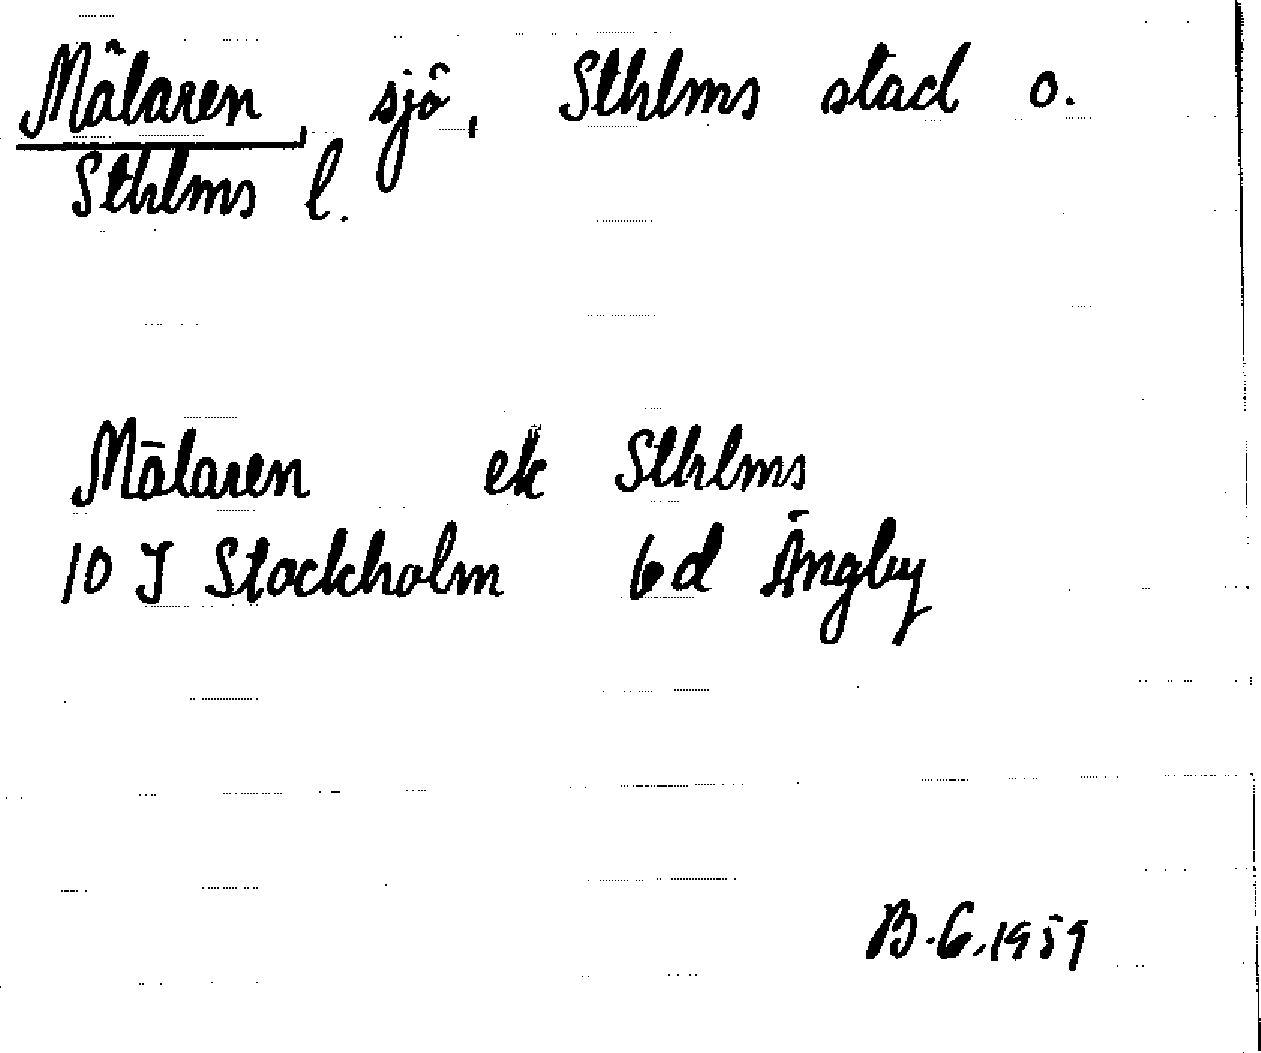 Mälaren, sjö, Sthlms stad o.
Sthlms l.
Mälaren ek Sthlms
10 I Stockholm 6d Ängby
B.G.1959